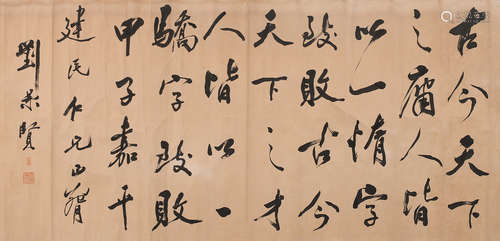 古今天下
之庸人皆
以一惰字
致敗古今
天下之才
人皆以一
驕字致敗
甲子嘉平
建民仁兄正腕
劉景賢